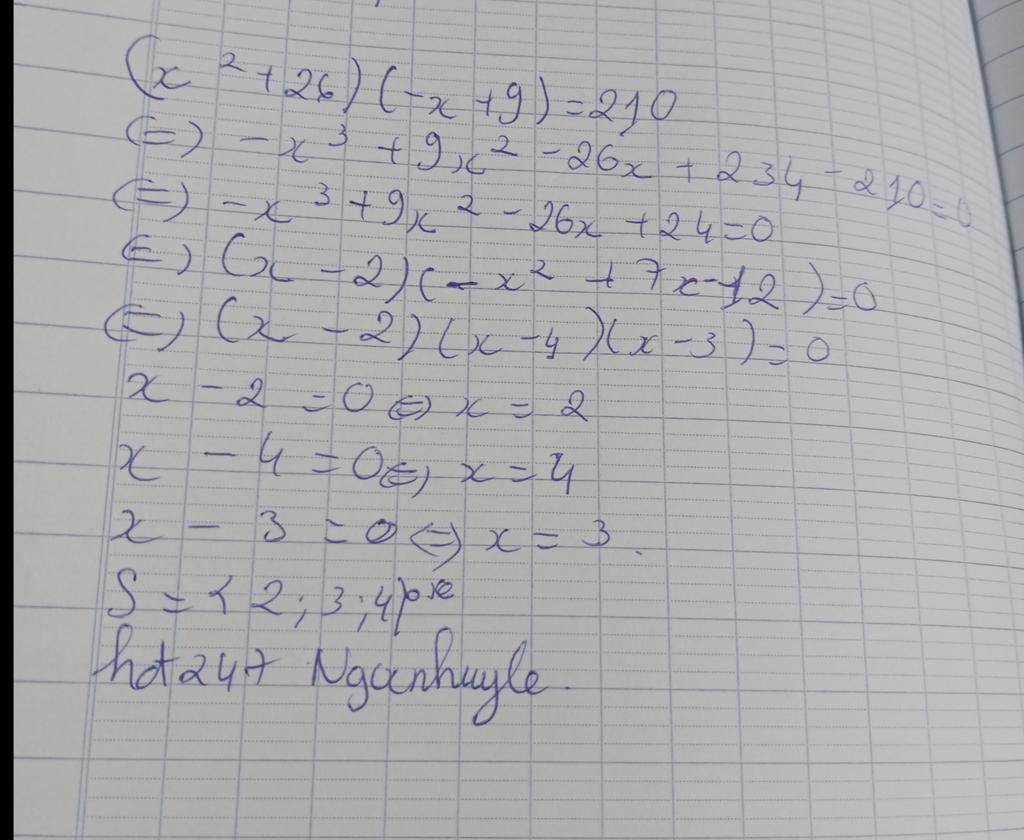 (x² + 26) (-x + 9) = 210
(=) -x³ + 9x² - 26x + 234 - 210 = 0
(=) -x³ + 9x² - 26x + 24 = 0
(=) (x - 2) (-x² + 7x - 12) = 0
(=) (x - 2) (x - 4)(x - 3) = 0
x - 2 = 0 ⇔ x = 2
x - 4 = 0 ⇔ x = 4
x - 3 = 0 ⇔ x = 3.
S = { 2 ; 3 ; 4}
hdt247 Nganhuyle.